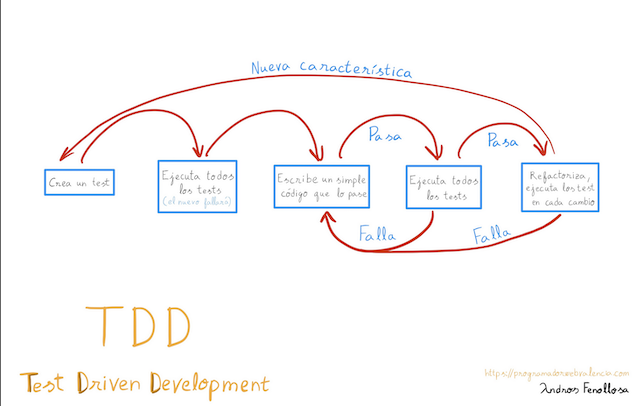 Nueva característica
Pasa
Pasa
Crea un test
Ejecuta todos
los tests
(el nuevo fallará)
Escribe un simple
código que lo pase
Ejecuta todos
los tests
Refactoriza,
ejecuta los test
en cada cambio
Falla
Falla
TDD
Test Driven Development
https://programadorwebvalencia.com
Andros Fenollosa